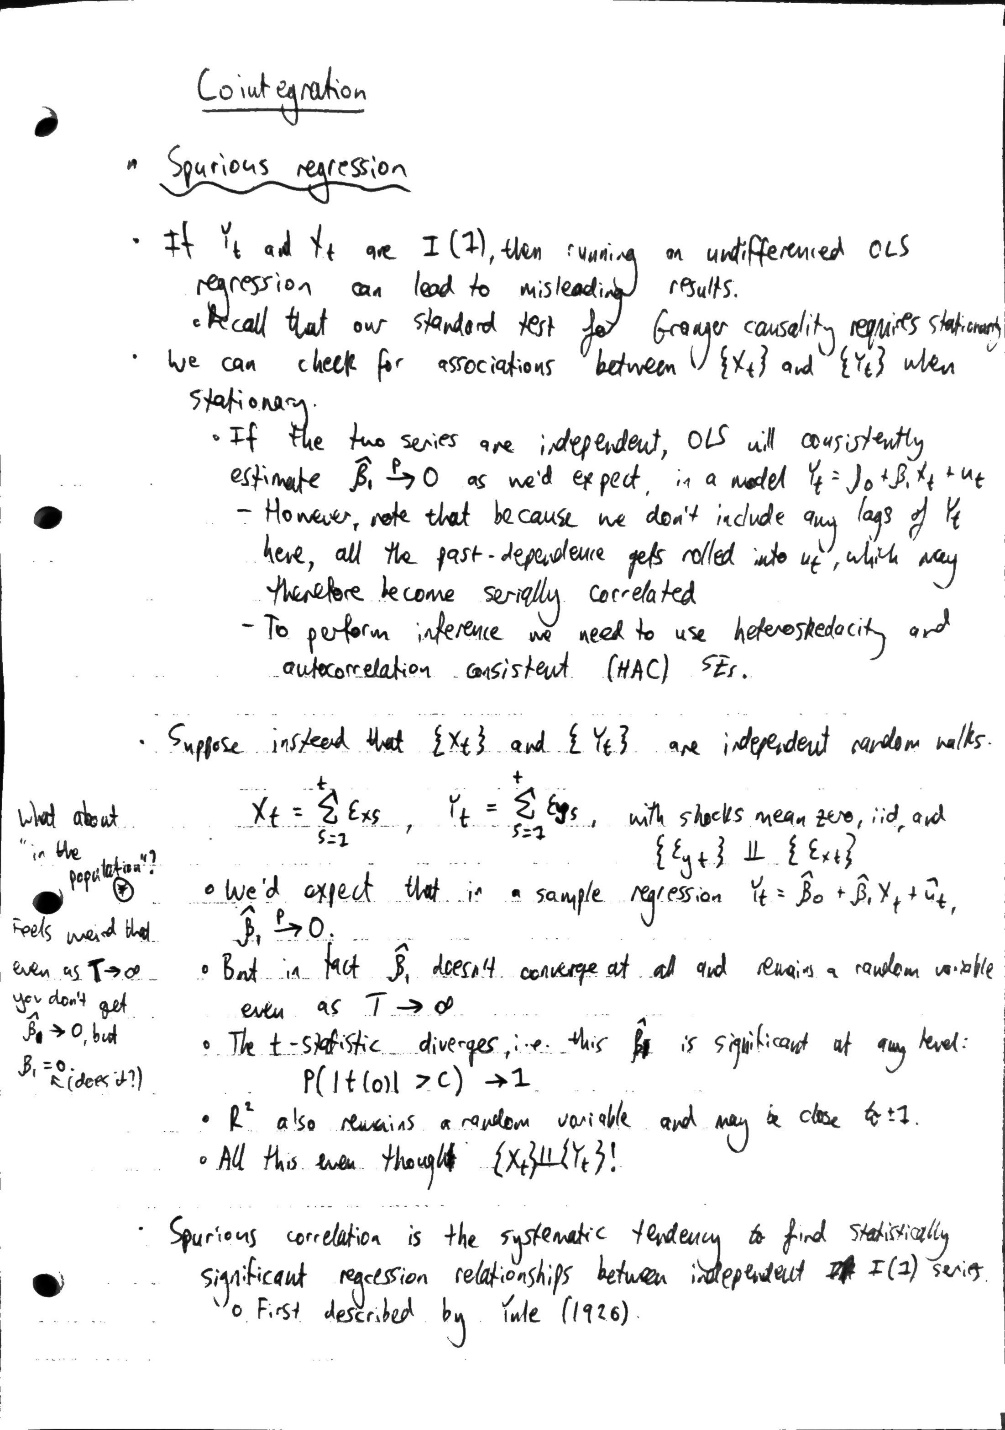 Cointegration
Spurious regression
• If Yt and Xt are I(1), then running an undifferenced OLS
regression can lead to misleading results.
• Recall that our standard test for Granger causality requires stationarity
• We can check for associations between {Xt} and {Yt} when
stationary.
• If the two series are independent, OLS will consistently
estimate β̂₁ →ᵖ 0 as we'd expect, in a model Yt = β₀ + β₁Xt + ut
– However, note that because we don't include any lags of Yt
here, all the past-dependence gets rolled into ut, which may
therefore become serially correlated
– To perform inference we need to use heteroskedacity and
autocorrelation consistent (HAC) SEs.
• Suppose instead that {Xt} and {Yt} are independent random walks.
Xt = Σ_{s=1}^{t} εxs, Yt = Σ_{s=1}^{t} εys, with shocks mean zero, iid, and
{εyt} ⫫ {εxt}
∘ We'd expect that in a sample regression Yt = β̂₀ + β̂₁Xt + ût,
β̂₁ →ᵖ 0.
∘ But in fact β̂₁ doesn't converge at all and remains a random variable
even as T → ∞
∘ The t-statistic diverges, i.e. this β̂₁ is significant at any level:
P(|t(0)| > C) → 1
• R² also remains a random variable and may be close to ±1.
∘ All this even though {Xt}⫫{Yt}!
What about
"in the
population"?
⊛
Feels weird that
even as T → ∞
you don't get
β̂₁ → 0, but
β₁ = 0.
↖(does it?)
• Spurious correlation is the systematic tendency to find statistically
significant regression relationships between independent I(1) series.
∘ First described by Yule (1926).